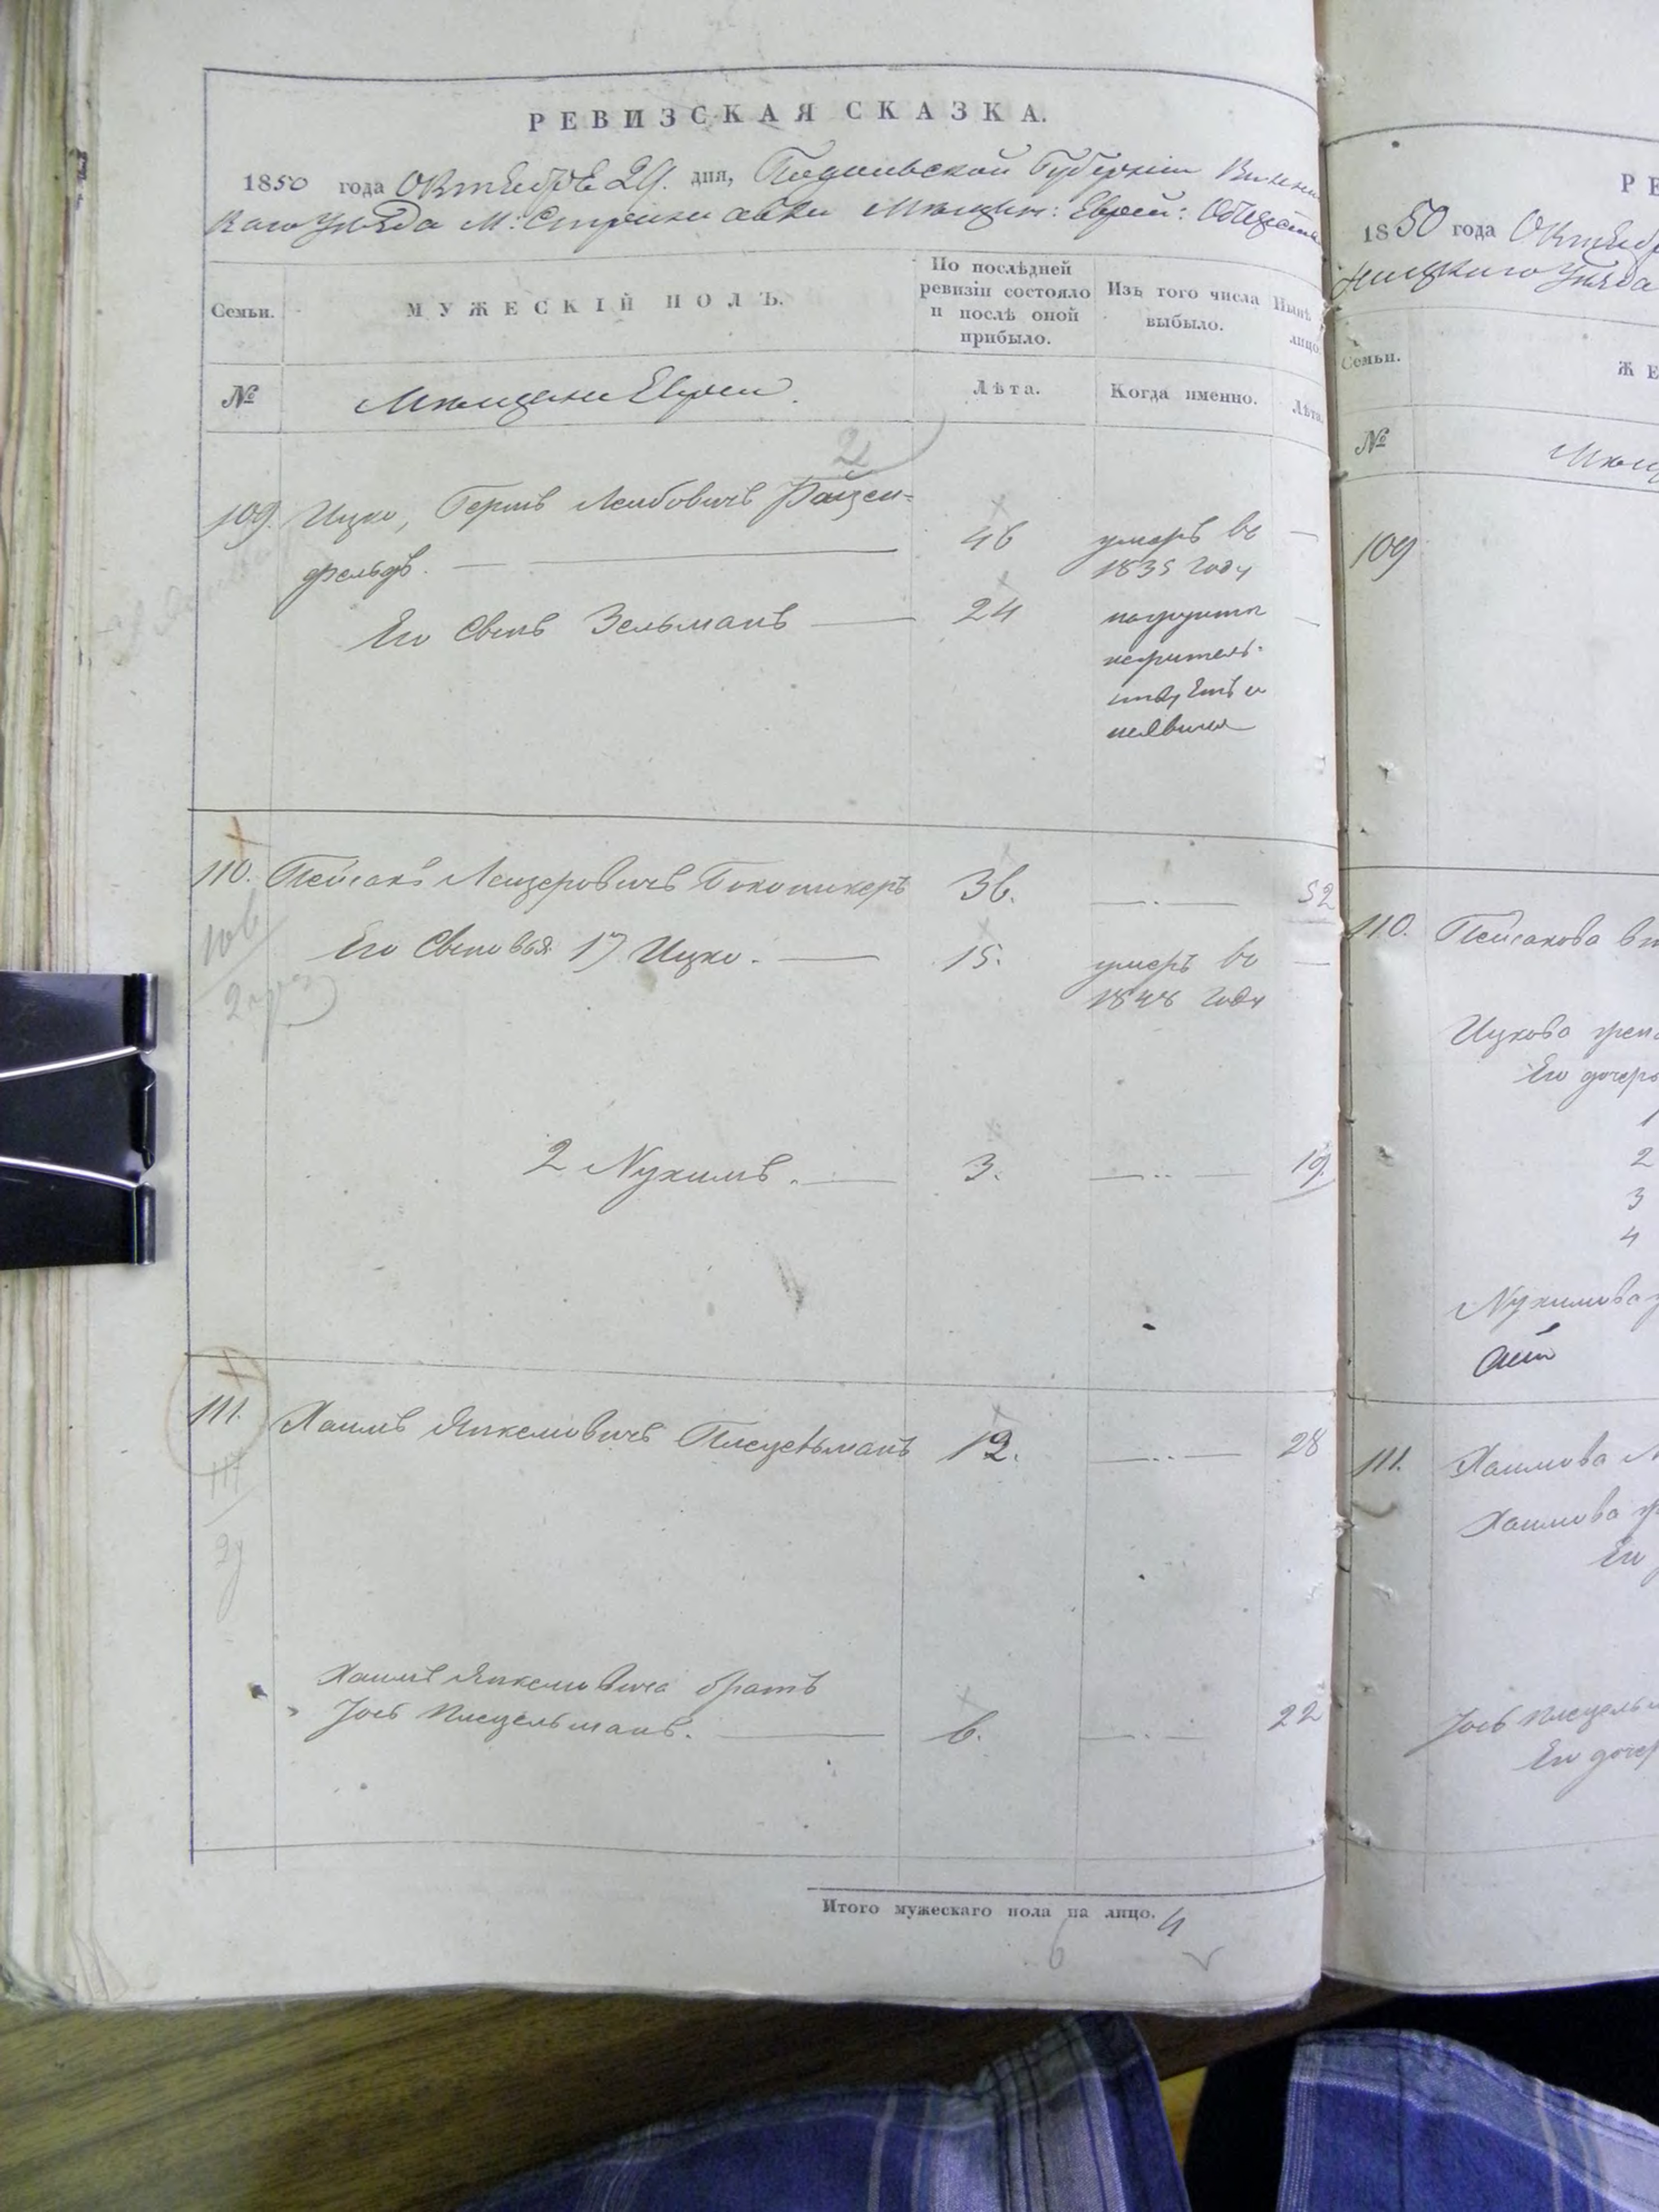 РЕВИЗСКАЯ СКАЗКА.
1850 года Октября 29. дня, Подольской Губернiи Винни
каго Уѣзда М: Стрижавки Мѣщан: Еврей: Обществ
Семьи.
МУЖЕСКIЙ ПОЛЪ.
По послѣдней
ревизiи состояло
и послѣ оной
прибыло.
Изъ того числа
выбыло.
Нынѣ
лицо.
№
Мѣщане Евреи.
Лѣта.
Когда именно.
Лѣта.
2
109. Ицко, Гершъ Лейбовичъ Райзен=
46 умеръ въ —
фельдъ. —
1835 году
Его Сынъ Зельманъ — 24
неявился
110. Пейсахъ Лейзеровичъ 36. — 52
Его Сыновья 1) Ицко. — 15. умеръ въ —
1848 году
2 Нухимъ. — 3. — 19.
111. Хаимъ Янкелевичъ Плецельманъ 12. — 28
Хаима Янкелевича братъ
Іосъ Плецельманъ. — 6. — 22
Итого мужескаго пола на лицо. 4
6
РЕ
1850 года Октябр
ницкаго Уѣзда
Семьи.
ЖЕ
№
Мѣщ
109
110. Пейсахова
Ицкова жена
Его дочери
1
2
3
4
Нухимова
111. Хаимова
Хаимова
Его
Іосъ Плецельм
Его дочер